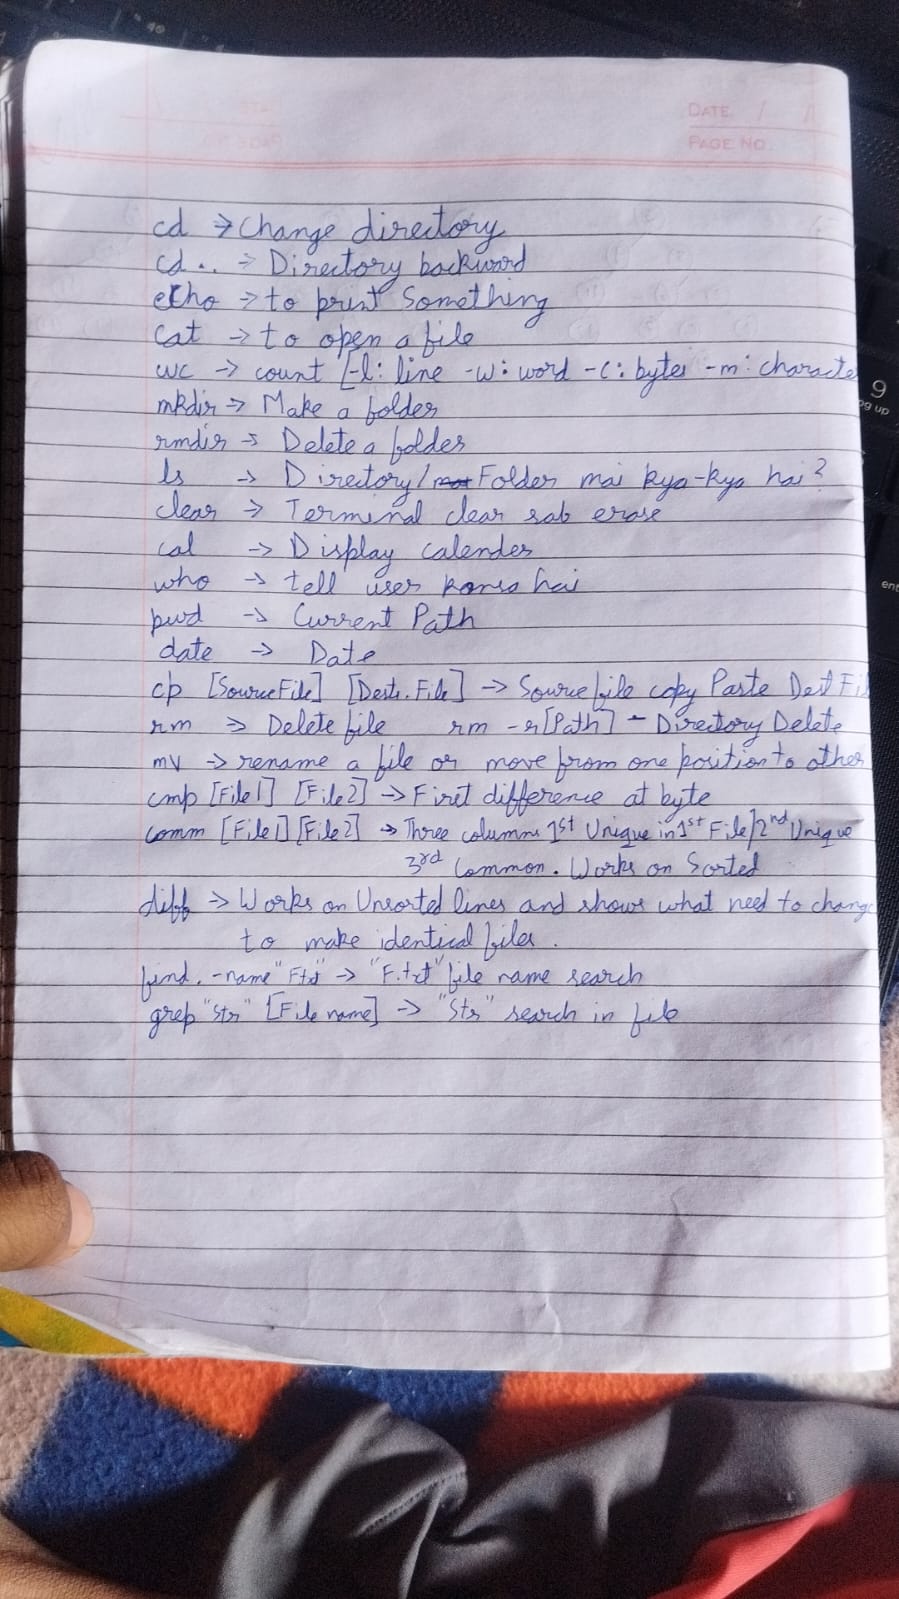 DATE / /
PAGE NO.
cd → Change directory
cd.. → Directory backward
echo → to print Something
cat → to open a file
wc → count [-l: line -w: word -c: bytes -m: characte
mkdir → Make a folder
rmdir → Delete a folder
ls → Directory/Folder mai kya-kya hai?
clear → Terminal clear sab erase
cal → Display calender
who → tell user konsa hai
pwd → Current Path
date → Date
cp [Source File] [Destn. File] → Source file copy Paste Dest Fi
rm → Delete file rm -r [Path] - Directory Delete
mv → rename a file or move from one position to other
cmp [File1] [File2] → First difference at byte
comm [File1] [File2] → Three columns 1st Unique in 1st File/2nd Unique
3rd Common. Works on Sorted
diff → Works on Unsorted lines and shows what need to change
to make identical files.
find . -name "F.txt" → "F.txt" file name search
grep "Str" [File name] → "Str" search in file
9
pg up
ent